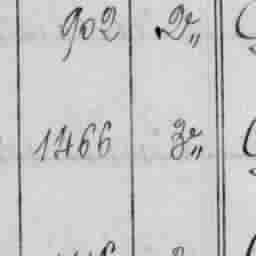 902 2e„
1466 3e„